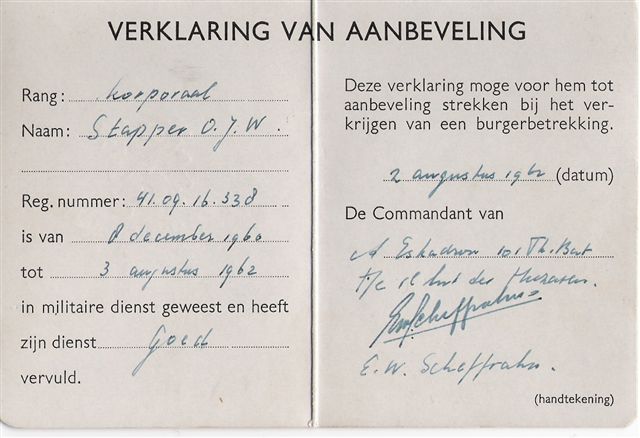 VERKLARING VAN AANBEVELING
Rang: korporaal
Naam: Stapper O.J.W.
Reg. nummer: 41.09.16.338
is van 8 december 1960
tot 3 augustus 1962
in militaire dienst geweest en heeft
zijn dienst Goed
vervuld.
Deze verklaring moge voor hem tot
aanbeveling strekken bij het ver-
krijgen van een burgerbetrekking.
2 augustus 1962 (datum)
De Commandant van
A Eskadron 101 Th. Bat
der Huzaren.
E.W. Scheffrahn.
(handtekening)